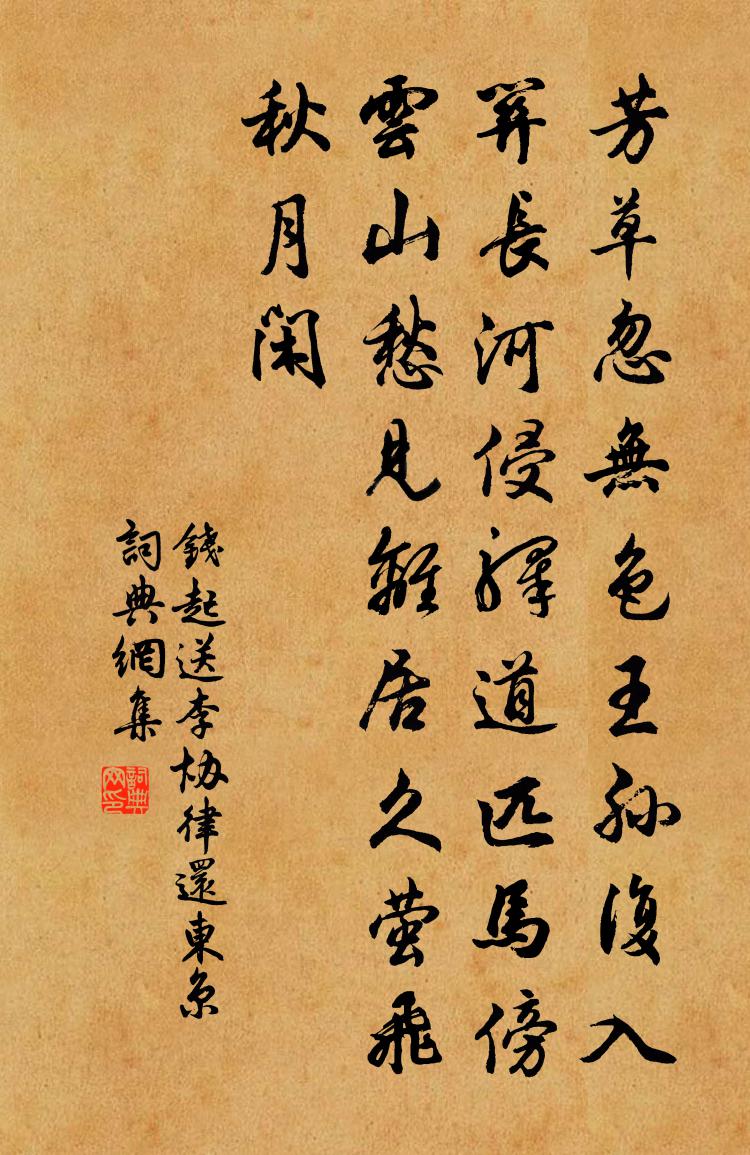 芳草忽無色王孫復入
關長河侵驛道匹馬傍
雲山愁見離居久螢飛
秋月閑
錢起送李恊律還東京
詞典網集
詞典网印